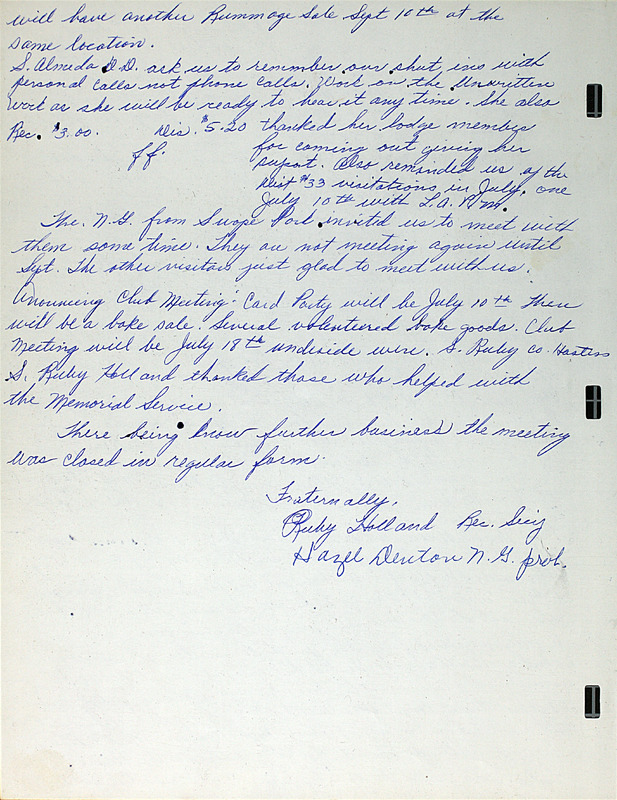 will have another Rummage Sale Sept 10th at the
same location.
S. Almeda D.D. ask us to remember our shut ins with
personal calls not phone calls. Work on the Unwritten
work as she will be ready to hear it any time. She also
Rec. $3.00. Dis. $5.20 thanked her lodge members
ff. for coming out giving her
suport. Also reminded us of the
Dist #33 visitations in July, one
July 10th with L.A.
The N.G. from Swope Park invited us to meet with
them some time. They are not meeting again until
Sept. The other visitors just glad to meet with us.
Anouncing Club Meeting: Card Party will be July 10th There
will be a bake sale. Several volenteered bake goods. Club
Meeting will be July 18th S. Ruby co. Hostess
S. Ruby Holland thanked those who helped with
the Memorial Service.
There being know further business the meeting
was closed in regular form.
Fraternally,
Ruby Holland Rec. Secy
Hazel Denton N.G. prob.